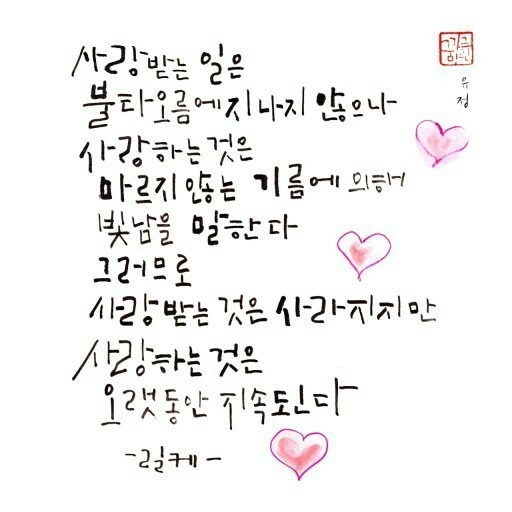 사랑받는 일은
불타오름에 지나지 않으나
사랑하는 것은
마르지않는 기름에 의해
빛남을 말한다
그러므로
사랑받는 것은 사라지지만
사랑하는 것은
오랫동안 지속된다
-릴케-
유정